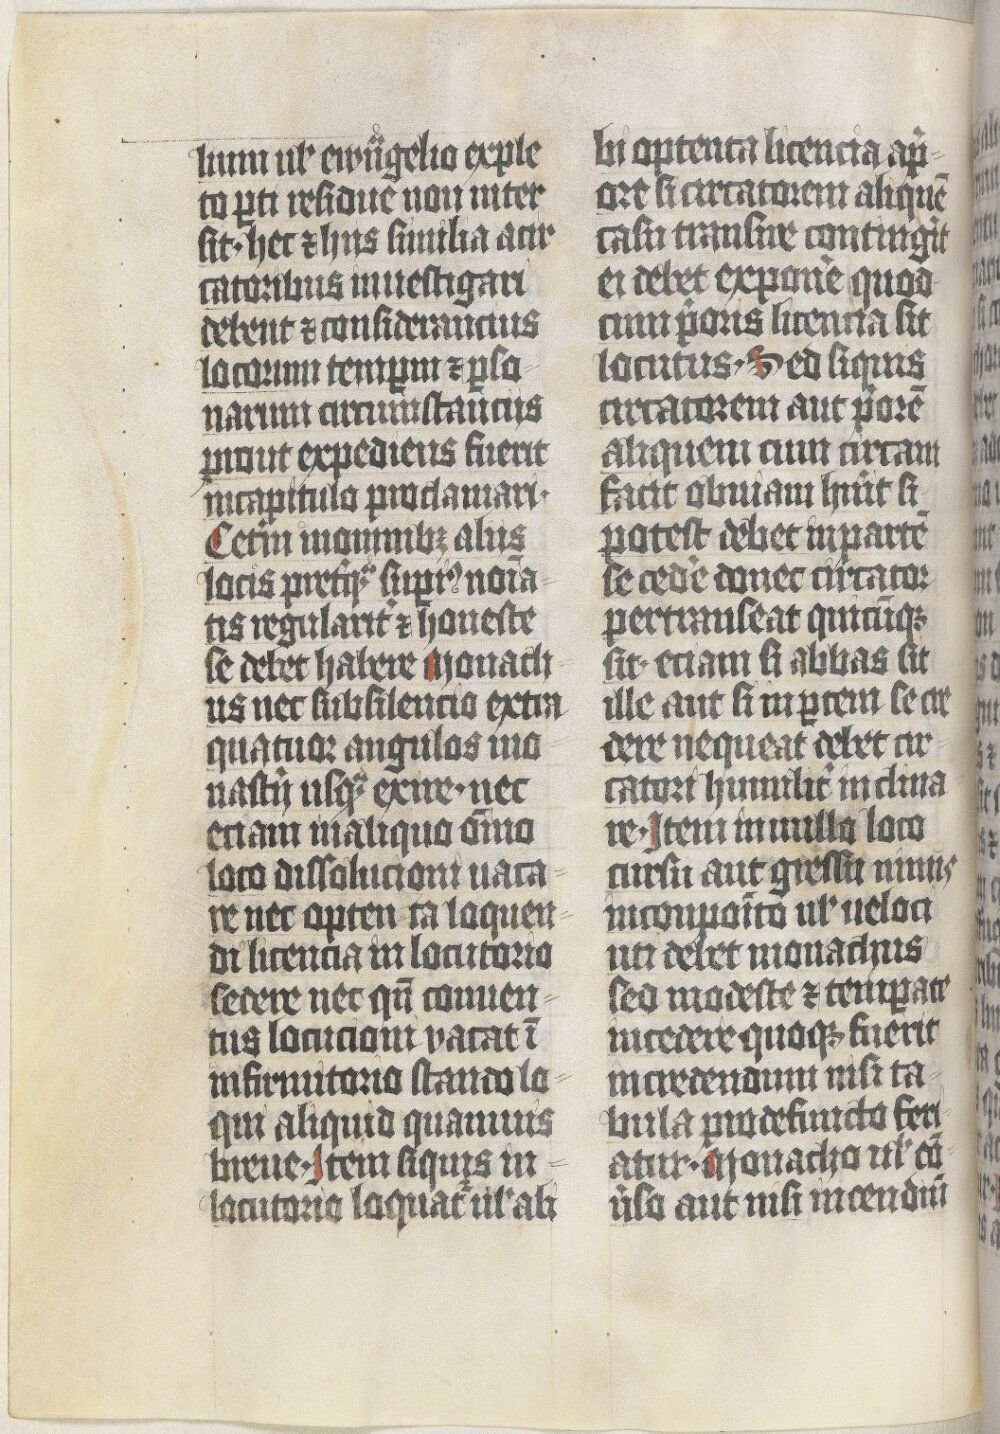 lium ul' ewu̅gelio exple
to p̲ti residue non inter
sit· hec ⁊ hijs similia a cir
catoribus inuestigari
debent ⁊ consideranciis
locorum temp̲um ⁊ p̲so
narum circumstanciis
prout expediens fuerit
in capitulo proclamari·
Cet'm in omnibꝫ aliis
locis
tis regularit' ⁊ honeste
se debet habere Monach
us nec sub silencio extra
quatuor angulos mo
nast'ij usqꝫ exire· nec
eciam in aliquo om̅ino
loco dissolucioni uaca-
re nec opten ta loquen-
di licencia in locutorio
sedere nec qn̅ conuen-
tus locucioni vacat i̅
infirmitorio stando lo-
qui aliquid quamuis
breue· Item siquis in-
locutorio loquat' ul' ali
bi optenta licencia a p'-
ore si circatorem alique̅
casu transire contingit
ei debet expone̅ quod
cum p'oris licencia sit
locutus· Sed siquis
circatorem aut p'ore̅
aliquem cum circam
facit obuiam hu̅it si
potest debet in parte̅
se ced'e donec circator
pertranseat quicu̅qꝫ
sit· eciam si abbas sit
ille aut si in p̲tem se ce
dere nequeat debet cir-
catori humilit' inclina
re· Item in nullo loco
cursu aut gressu nimis
inconpo̅ito ul' ueloci
uti debet monachus
sed modeste ⁊ temp̲ate
incedere quoqꝫ fuerit
incedendum nisi ta-
bula pro defuncto feri
atur· Monacho ul' co̅
u'so aut nisi incendiu̅